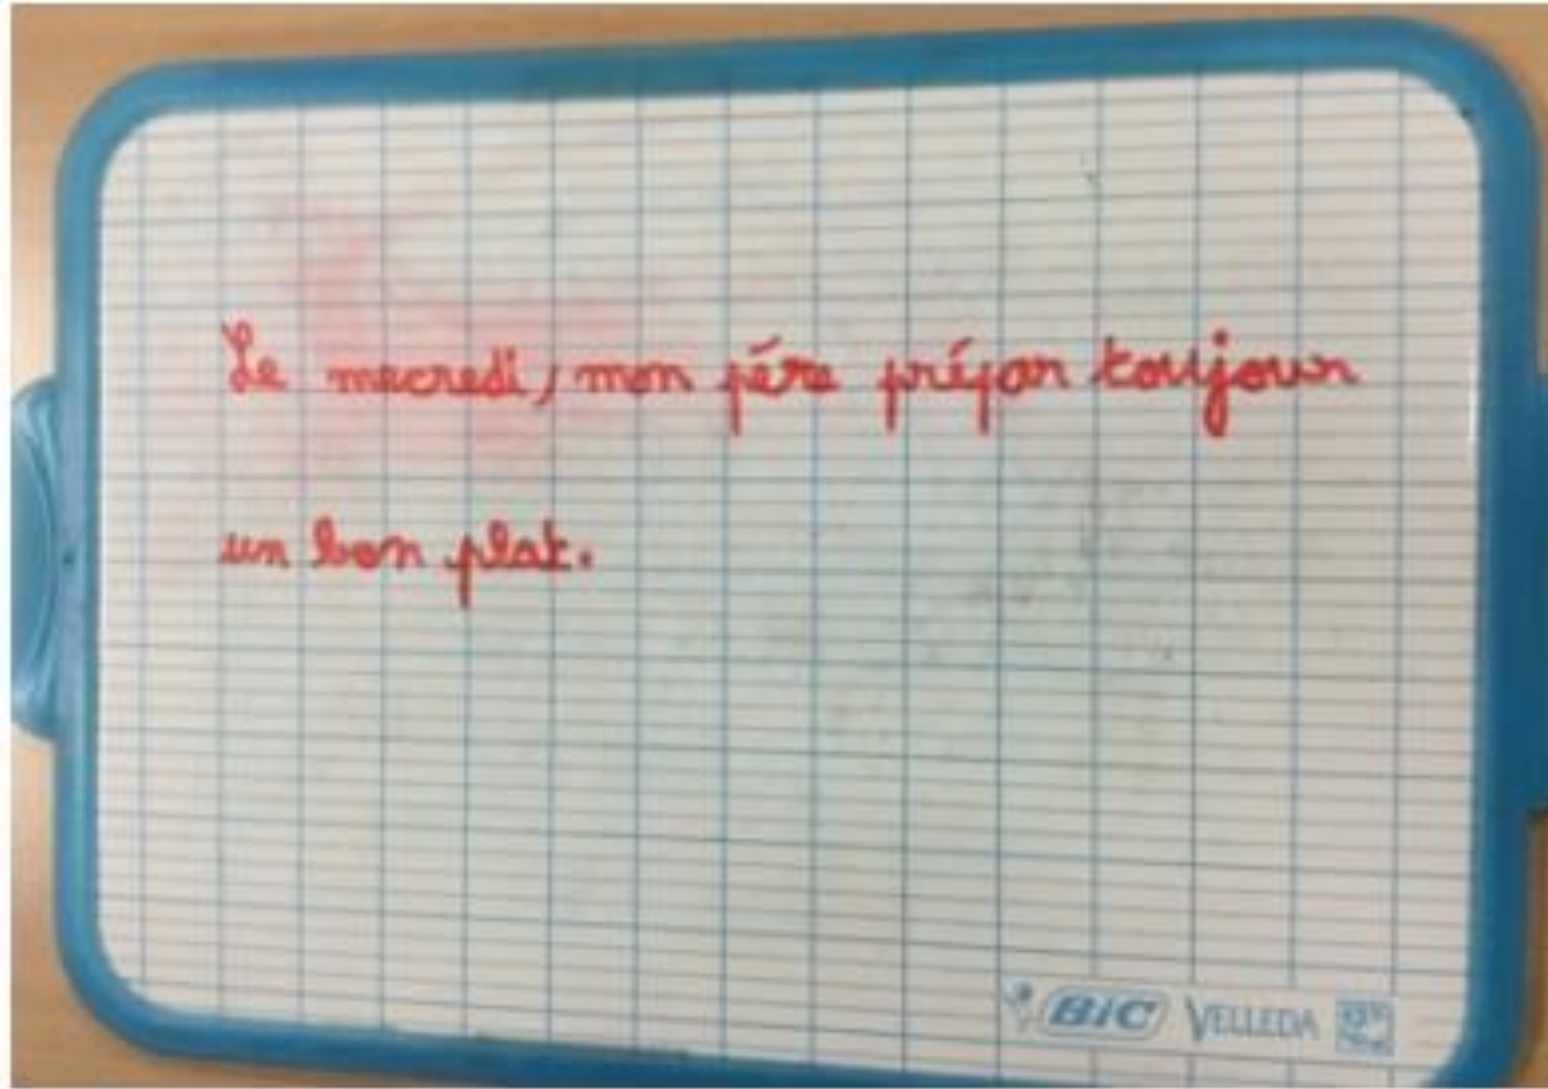 Le mecredi, mon pére prépar toujour
un bon plat.
BIC VELLEDA